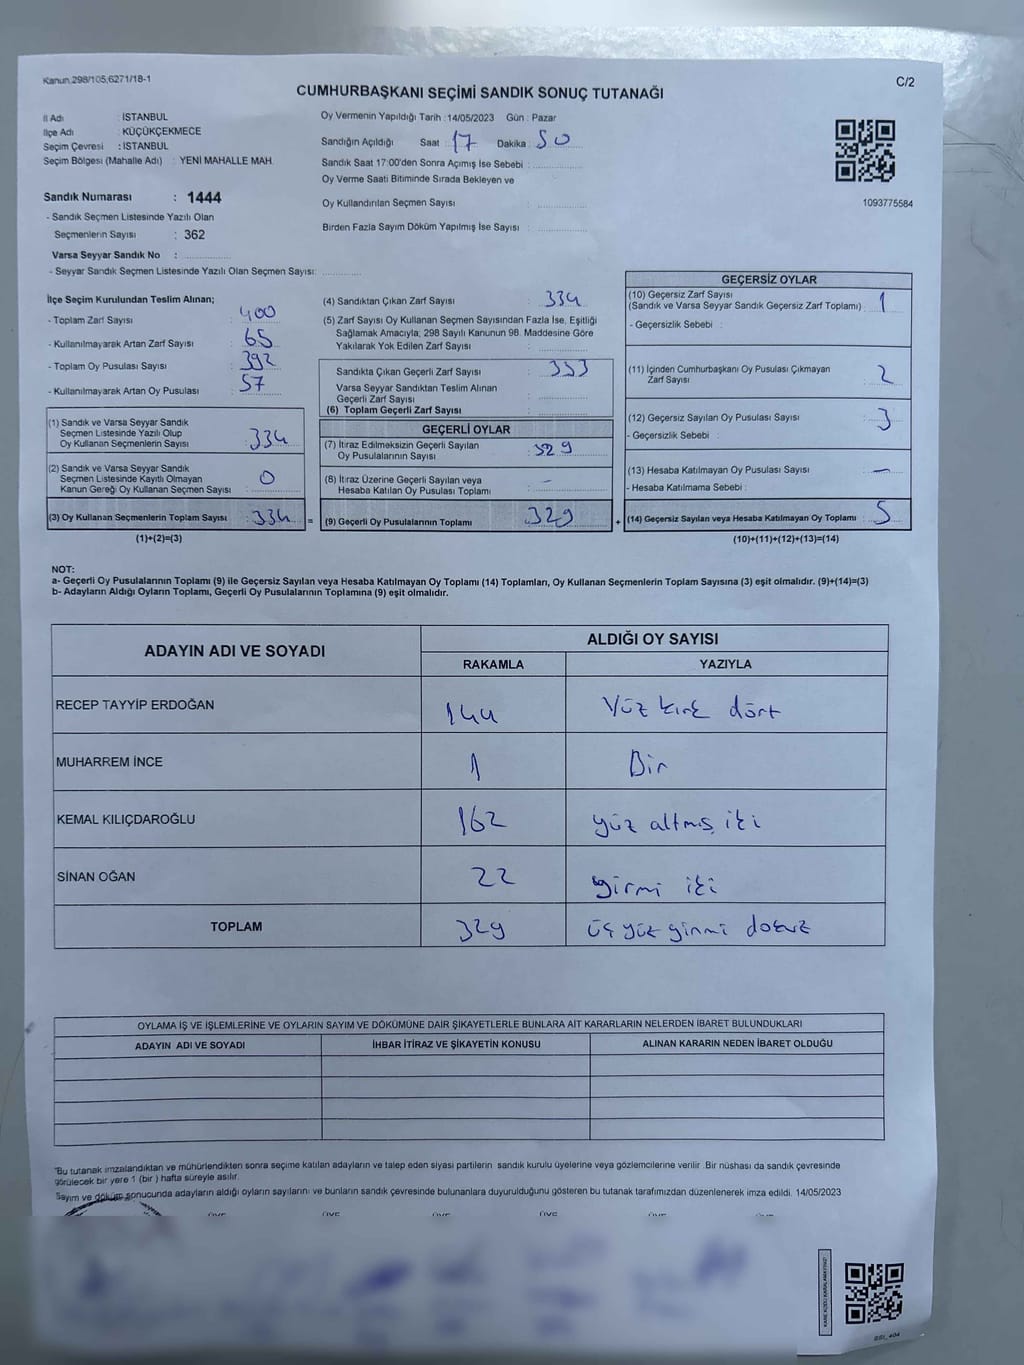 Kanun 298/105,6271/18-1
C/2
CUMHURBAŞKANI SEÇİMİ SANDIK SONUÇ TUTANAĞI
İl Adı : İSTANBUL
İlçe Adı : KÜÇÜKÇEKMECE
Seçim Çevresi : İSTANBUL
Seçim Bölgesi (Mahalle Adı) : YENİ MAHALLE MAH.
Oy Vermenin Yapıldığı Tarih : 14/05/2023 Gün : Pazar
Sandığın Açıldığı Saat 17 Dakika 50
Sandık Saat 17:00'den Sonra Açımış İse Sebebi :
Oy Verme Saati Bitiminde Sırada Bekleyen ve
Oy Kullandırılan Seçmen Sayısı :
Birden Fazla Sayım Döküm Yapılmış İse Sayısı :
1093775584
Sandık Numarası : 1444
- Sandık Seçmen Listesinde Yazılı Olan
Seçmenlerin Sayısı : 362
Varsa Seyyar Sandık No :
- Seyyar Sandık Seçmen Listesinde Yazılı Olan Seçmen Sayısı:
İlçe Seçim Kurulundan Teslim Alınan;
- Toplam Zarf Sayısı : 400
- Kullanılmayarak Artan Zarf Sayısı : 65
- Toplam Oy Pusulası Sayısı : 392
- Kullanılmayarak Artan Oy Pusulası : 57
(1) Sandık ve Varsa Seyyar Sandık
Seçmen Listesinde Yazılı Olup
Oy Kullanan Seçmenlerin Sayısı : 334
(2) Sandık ve Varsa Seyyar Sandık
Seçmen Listesinde Kayıtlı Olmayan
Kanun Gereği Oy Kullanan Seçmen Sayısı : 0
(3) Oy Kullanan Seçmenlerin Toplam Sayısı : 334
(1)+(2)=(3)
=
(4) Sandıktan Çıkan Zarf Sayısı : 334
(5) Zarf Sayısı Oy Kullanan Seçmen Sayısından Fazla İse, Eşitliği
Sağlamak Amacıyla, 298 Sayılı Kanunun 98. Maddesine Göre
Yakılarak Yok Edilen Zarf Sayısı :
Sandıkta Çıkan Geçerli Zarf Sayısı : 333
Varsa Seyyar Sandıktan Teslim Alınan
Geçerli Zarf Sayısı :
(6) Toplam Geçerli Zarf Sayısı :
GEÇERLİ OYLAR
(7) İtiraz Edilmeksizin Geçerli Sayılan
Oy Pusulalarının Sayısı : 329
(8) İtiraz Üzerine Geçerli Sayılan veya
Hesaba Katılan Oy Pusulası Toplamı : -
(9) Geçerli Oy Pusulalarının Toplamı : 329
+
GEÇERSİZ OYLAR
(10) Geçersiz Zarf Sayısı
(Sandık ve Varsa Seyyar Sandık Geçersiz Zarf Toplamı) : 1
- Geçersizlik Sebebi :
(11) İçinden Cumhurbaşkanı Oy Pusulası Çıkmayan
Zarf Sayısı : 2
(12) Geçersiz Sayılan Oy Pusulası Sayısı : 3
- Geçersizlik Sebebi :
(13) Hesaba Katılmayan Oy Pusulası Sayısı : -
- Hesaba Katılmama Sebebi :
(14) Geçersiz Sayılan veya Hesaba Katılmayan Oy Toplamı : 5
(10)+(11)+(12)+(13)=(14)
NOT:
a- Geçerli Oy Pusulalarının Toplamı (9) ile Geçersiz Sayılan veya Hesaba Katılmayan Oy Toplamı (14) Toplamları, Oy Kullanan Seçmenlerin Toplam Sayısına (3) eşit olmalıdır. (9)+(14)=(3)
b- Adayların Aldığı Oyların Toplamı, Geçerli Oy Pusulalarının Toplamına (9) eşit olmalıdır.
ADAYIN ADI VE SOYADI ALDIĞI OY SAYISI
RAKAMLA YAZIYLA
RECEP TAYYİP ERDOĞAN 144 Yüz kırk dört
MUHARREM İNCE 1 Bir
KEMAL KILIÇDAROĞLU 162 yüz altmış iki
SİNAN OĞAN 22 yirmi iki
TOPLAM 329 üç yüz yirmi dokuz
OYLAMA İŞ VE İŞLEMLERİNE VE OYLARIN SAYIM VE DÖKÜMÜNE DAİR ŞİKAYETLERLE BUNLARA AİT KARARLARIN NELERDEN İBARET BULUNDUKLARI
ADAYIN ADI VE SOYADI İHBAR İTİRAZ VE ŞİKAYETİN KONUSU ALINAN KARARIN NEDEN İBARET OLDUĞU
*Bu tutanak imzalandıktan ve mühürlendikten sonra seçime katılan adayların ve talep eden siyasi partilerin sandık kurulu üyelerine veya gözlemcilerine verilir. Bir nüshası da sandık çevresinde
görülecek bir yere 1 (bir) hafta süreyle asılır.
Sayım ve döküm sonucunda adayların aldığı oyların sayılarını ve bunların sandık çevresinde bulunanlara duyurulduğunu gösteren bu tutanak tarafımızdan düzenlenerek imza edildi. 14/05/2023
ÜYE ÜYE ÜYE ÜYE ÜYE ÜYE
KARE KODU KARALAMAYINIZ!